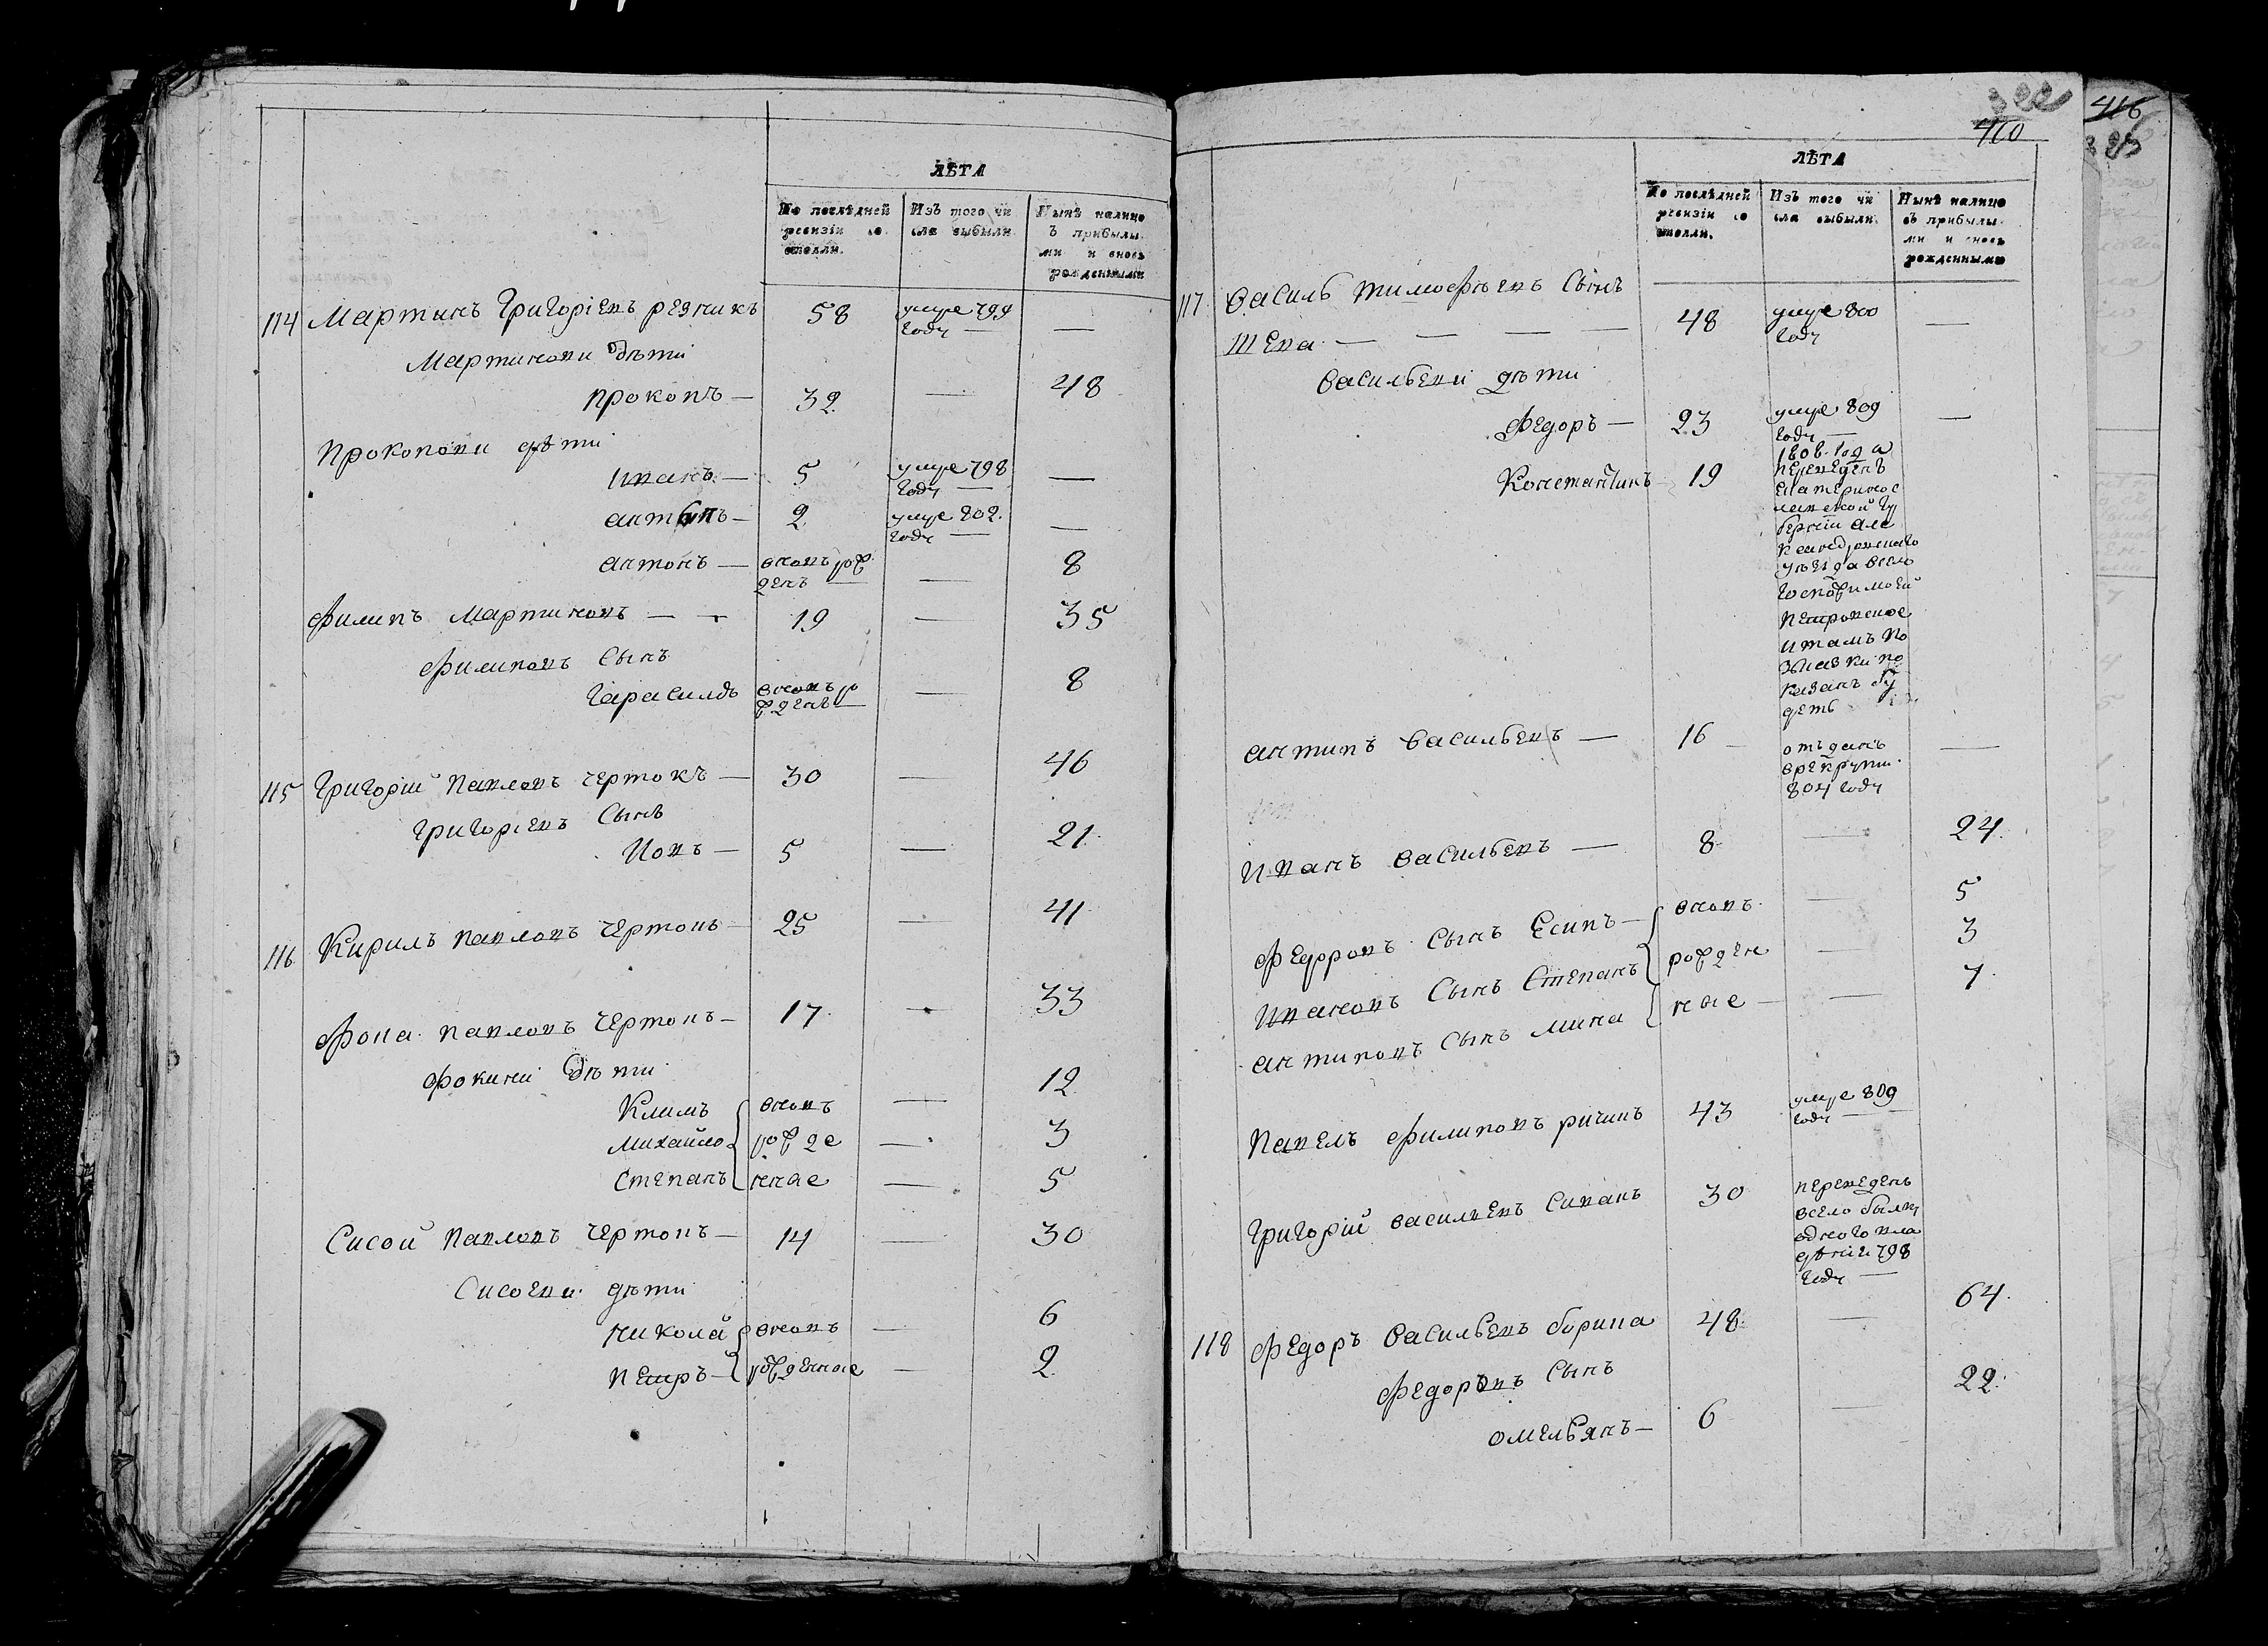 ЛѢТА
По послѣдней ревизіи состояли.
Изъ того числа выбыли
Нынѣ на лицо съ прибылыми и вновь рожденными
114 Мартинъ Григоріевъ резникъ 58 умре 799 году —
Мартинови дѣти
прокопъ — 32 — 48
Прокопови дѣти
иванъ — 5 умре 798 году — —
антипъ — 2 умре 802 году — —
антонъ — вновь рожденъ — — 8
Филипъ Мартиновъ — — 19 — 35
Филиповъ сынъ
Гарасимъ вновь рожденъ — — 8
115 Григорій Павловъ чертокъ — 30 — 46
Григоріевъ сынъ
Иовъ — 5 — 21
116 Кирилъ Павловъ чертовъ — 25 — 41
Фока Павловъ чертовъ — 17 — 33
Фокини дѣти
Климъ вновь — 12
Михайло рожде — 3
Степанъ нные — 5
Сисой Павловъ чертовъ — 14 — 30
Сисоеви дѣти
Никола вновь — 6
Петръ — рожденные — 2
322
410
416
ЛѢТА
По послѣдней ревизіи состояли.
Изъ того числа выбыли.
Нынѣ на лицо съ прибылыми и вновь рожденными
117 Василь Тимофѣевъ сынъ
Шева — — — — 48 умре 800 году —
Васильеви дѣти
Федоръ — 23 умре 809 году — —
Константинъ 19 1806 года
переведенъ
Екатеринос
лавской Гу
берніи Але
ксандровскаго
уѣзда въсело
Госпожи моей
Петровское
и тамъ по
сказки по
казанъ бу
детъ
антипъ Васильевъ — 16 отъданъ
врекруты
804 году —
Иванъ Васильевъ — 8 — 24
Федоровъ сынъ Есипъ — вновь — 5
Ивановъ сынъ Степанъ рожден — 3
антиповъ сынъ мина ные — — 7
Павелъ Филиповъ ричинъ 43 умре 809 году —
Григорій Васильевъ Сивакъ 30 переведенъ
всело
одного вла
дѣнія 798
году —
118 Федоръ Васильевъ борина 48 — 64
Федоровъ сынъ
омельянъ — 6 — 22